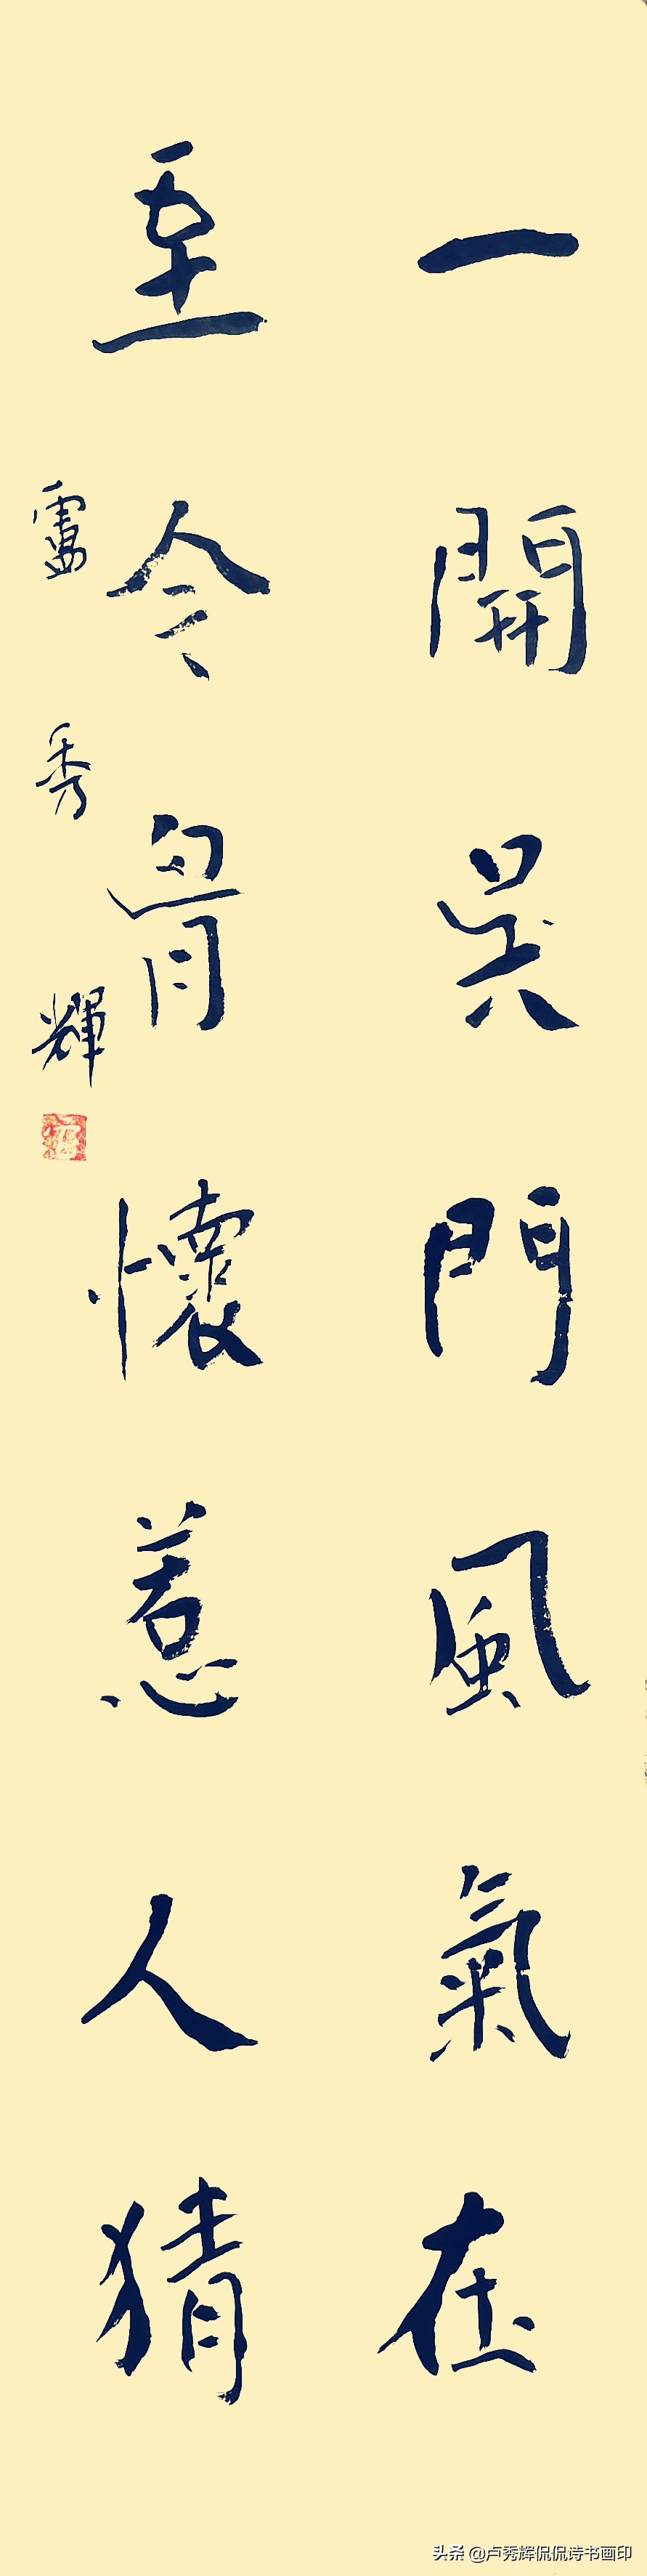 一開吳門風氣在
至今胷懷惹人猜
盧秀輝
头条 @卢秀辉侃侃诗书画印